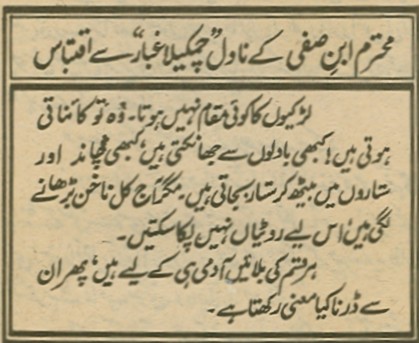 محترم ابنِ صفی کے ناول "چمکیلا غبار" سے اقتباس
لڑکیوں کا کوئی مقام نہیں ہوتا۔ وُہ تو کائناتی
ہوتی ہیں! کبھی بادلوں سے جھانکتی ہیں، کبھی چاند اور
ستاروں میں بیٹھ کر ستار بجاتی ہیں۔ مگر آج کل ناخن بڑھانے
لگی ہیں، اس لیے روٹیاں نہیں پکا سکتیں۔
ہر قسم کی بلائیں آدمی ہی کے لیے ہیں، پھر ان
سے ڈرنا کیا معنی رکھتا ہے۔